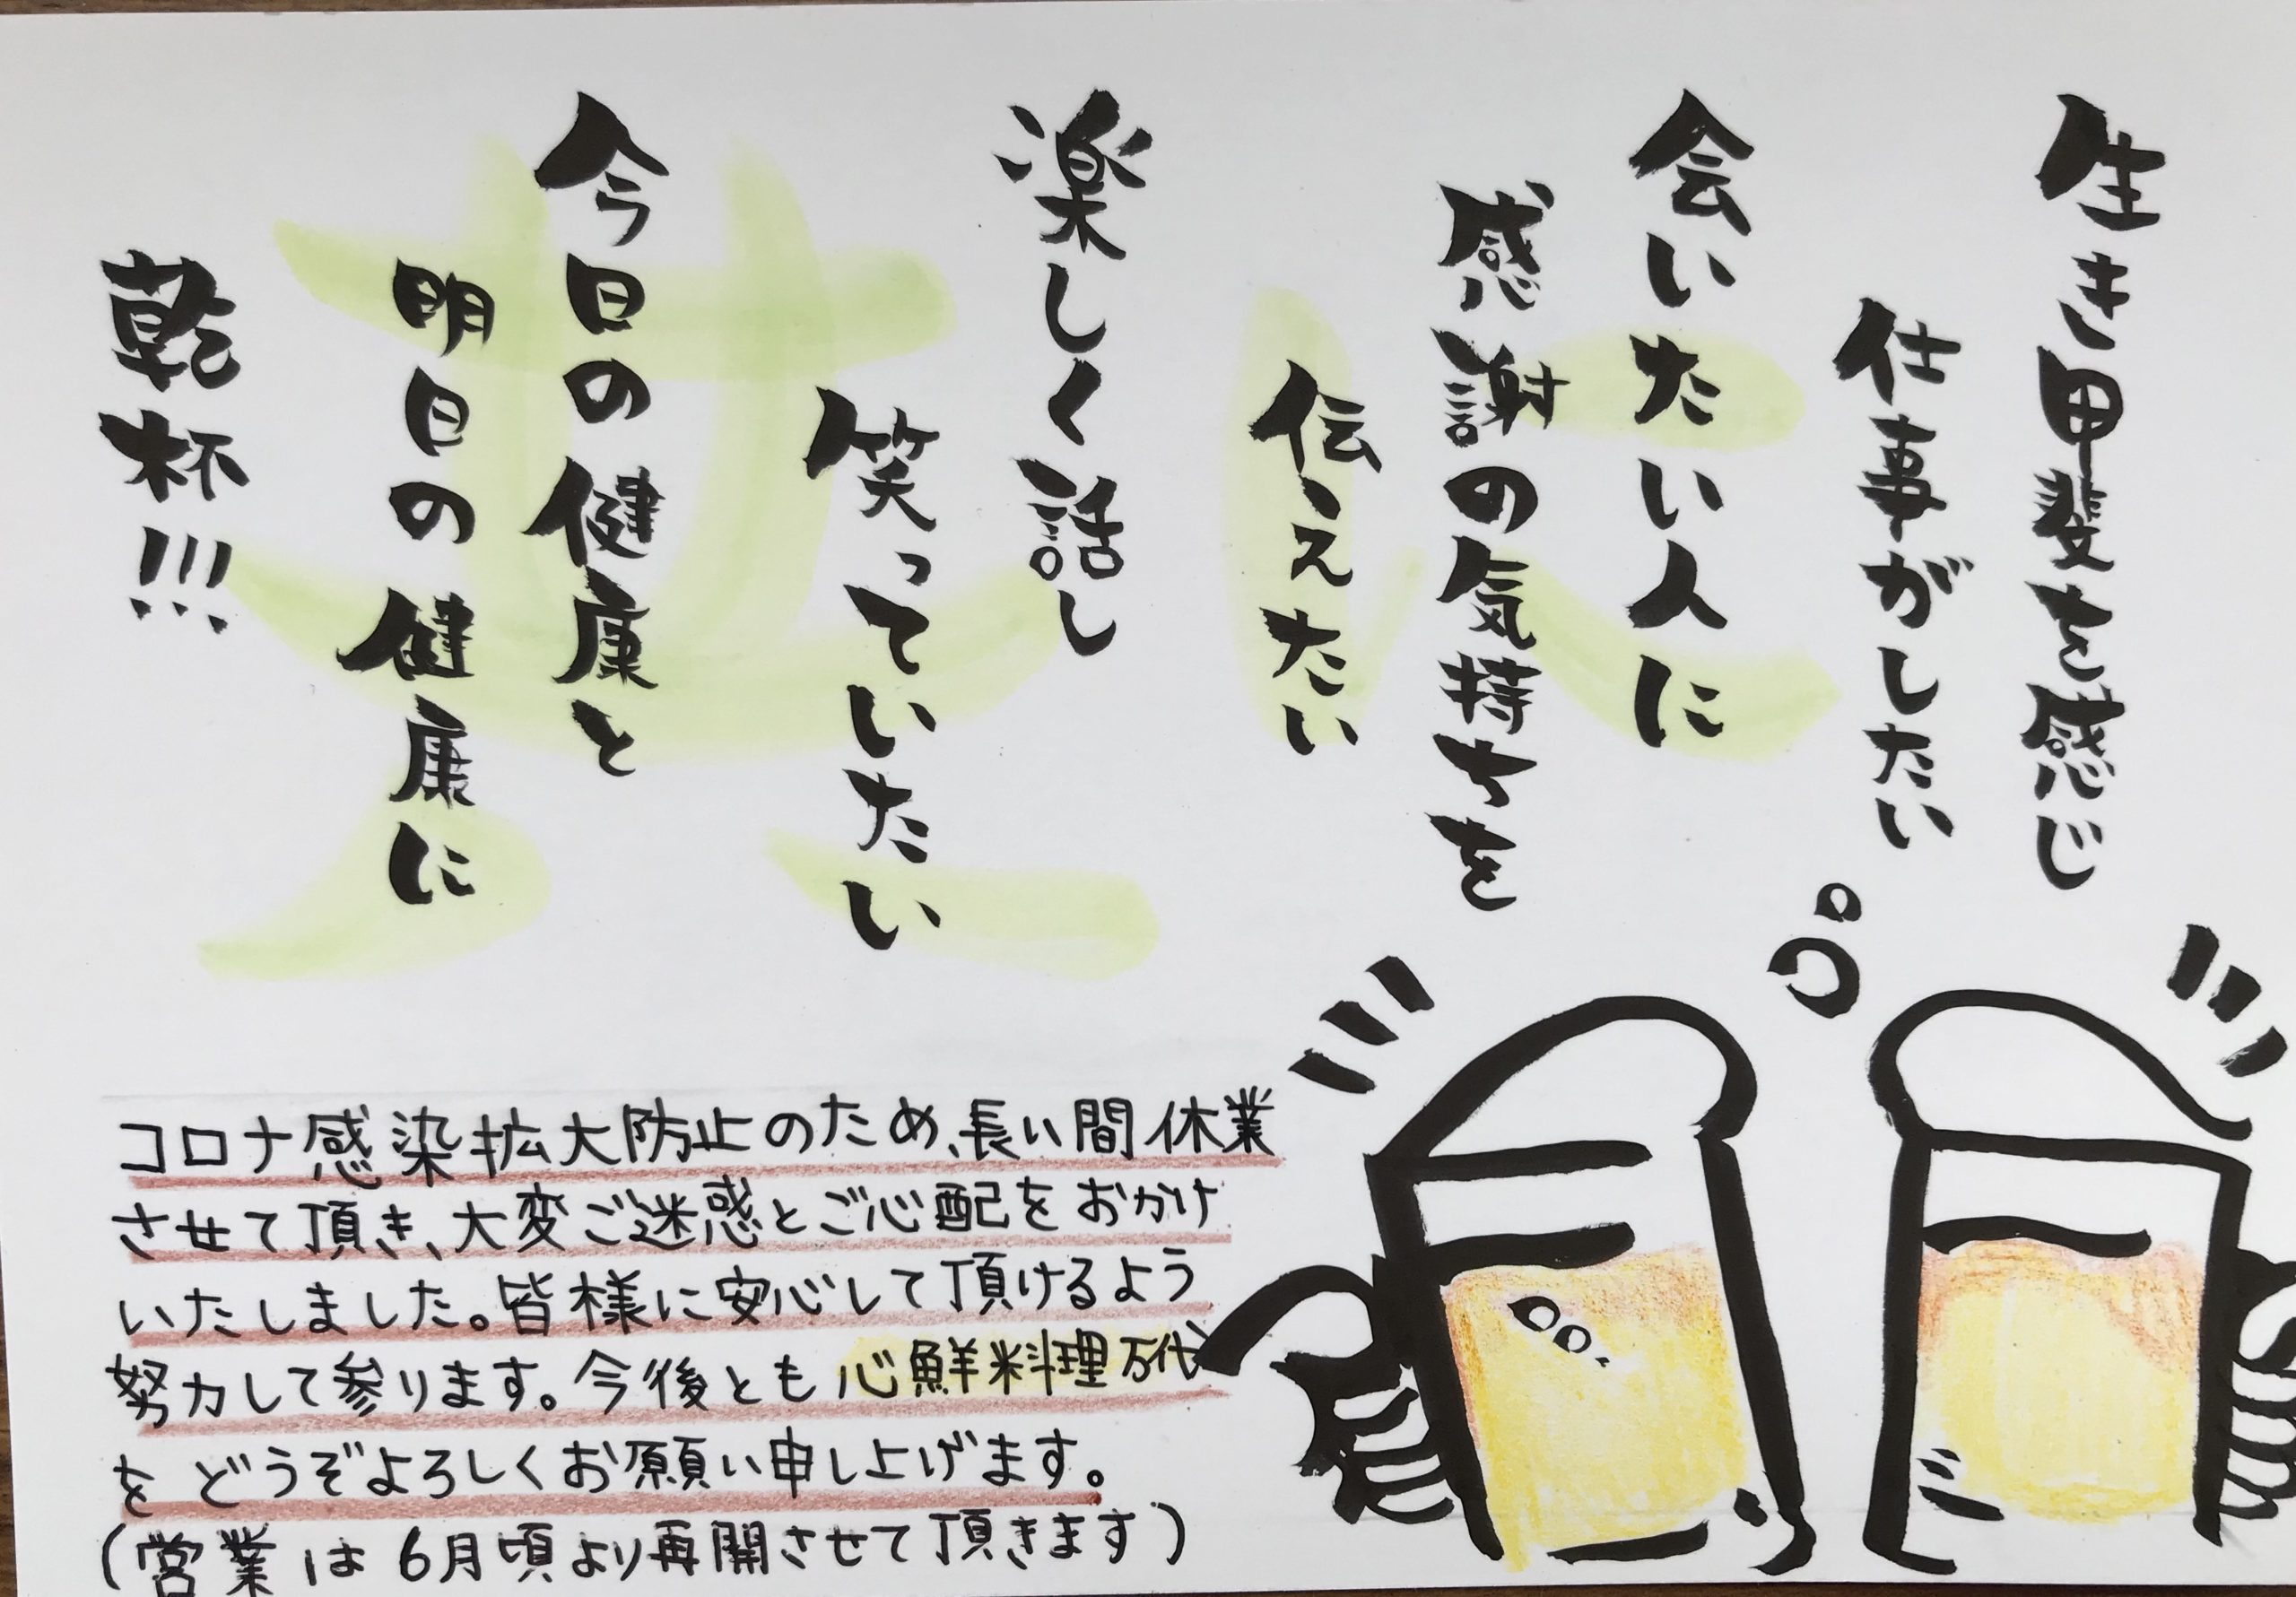 生き甲斐を感じ
仕事がしたい
会いたい人に
感謝の気持ちを
伝えたい
楽しく話し
笑っていたい
今日の健康と
明日の健康に
乾杯!!!
コロナ感染拡大防止のため、長い間休業
させて頂き、大変ご迷惑とご心配をおかけ
いたしました。皆様に安心して頂けるよう
努力して参ります。今後とも心鮮料理万代
をどうぞよろしくお願い申し上げます。
(営業は6月頃より再開させて頂きます)